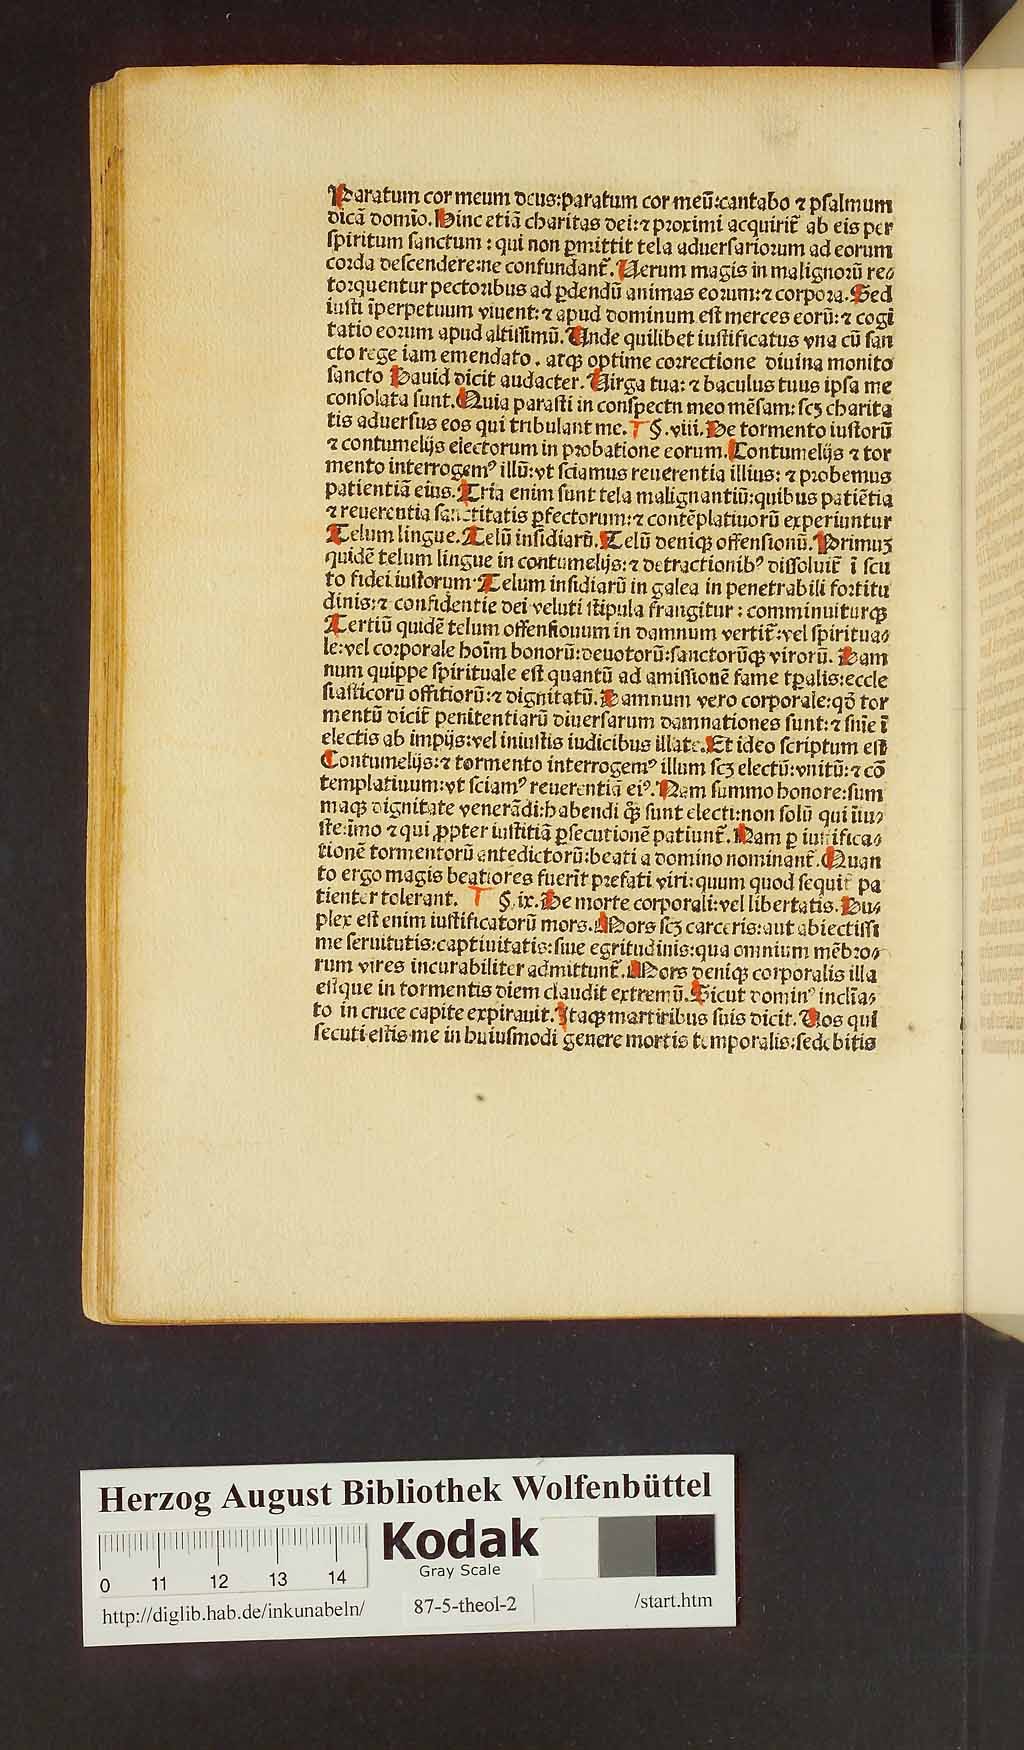 Paratum cor meum deus:paratum cor meū:cantabo ⁊ psalmum
dicā domīo. Hinc etiā charitas dei:⁊ proximi acquirit̃ ab eis per
spiritum sanctum : qui non ꝑmittit tela aduersariorum ad eorum
corda descendere:ne confundant̃. Uerum magis in malignorū re⸗
torquentur pectoribus ad ꝑdendū animas eorum:⁊ corpora. Sed
iusti īperpetuum viuent:⁊ apud dominum est merces eorū:⁊ cogi
tatio eorum apud altissimū. Unde quilibet iustificatus vna cū san
cto rege iam emendato . atqꝫ optime correctione diuina monito
sancto Dauid dicit audacter. Uirga tua: ⁊ baculus tuus ipsa me
consolata sunt. Quia parasti in conspectu meo mēsam: scꝫ charita
tis aduersus eos qui tribulant me. §. viii. De tormento iustorū
⁊ contumelijs electorum in probatione eorum. Contumelijs ⁊ tor
mento interrogemꝰ illū:vt sciamus reuerentia illius: ⁊ probemus
patientiā eius. Tria enim sunt tela malignantiū:quibus patiētia
⁊ reuerentia sanctitatis ꝑfectorum:⁊ contēplatiuorū experiuntur
Telum lingue. Telū insidiarū. Telū deniqꝫ offensionū. Primuꝫ
quidē telum lingue in contumelijs:⁊ detractionibꝰ dissoluit̃ ī scu
to fidei iustorum. Telum insidiarū in galea in penetrabili fortitu
dinis:⁊ confidentie dei veluti stipula frangitur : comminuiturqꝫ
Tertiū quidē telum offensionum in damnum vertit̃:vel spiritua⸗
le:vel corporale hoīm bonorū:deuotorū:sanctorūqꝫ virorū. Dam
num quippe spirituale est quantū ad amissionē fame tꝑalis:eccle
siasticorū offitiorū:⁊ dignitatū. Damnum vero corporale:qđ tor
mentū dicit̃ penitentiarū diuersarum damnationes sunt:⁊ siue ī
electis ab impijs:vel iniustis iudicibus illate. Et ideo scriptum est
Contumelijs:⁊ tormento interrogemꝰ illum scꝫ electū:vnitū:⁊ cō
templatiuum:vt sciamꝰ reuerentiā eiꝰ. Nam summo honore:sum
maqꝫ dignitate venerādi:habendi qꝫ sunt electi:non solū qui iiu⸗
ste:imo ⁊ qui ꝓpter iustitiā ꝑsecutionē patiunt̃. Nam ꝑ iustifica⸗
tionē tormentorū antedictorū:beati a domino nominant̃. Quan
to ergo magis beatiores fuerīt prefati viri:quum quod sequit̃ pa
tienter tolerant. §. ix. De morte corporali:vel libertatis. Du⸗
plex est enim iustificatorū mors. Mors scꝫ carceris:aut abiectissi
me seruitutis:captiuitatis:siue egritudinis:qua omnium mēbro⸗
rum vires incurabiliter admittunt̃. Mors deniqꝫ corporalis illa
estque in tormentis diem claudit extremū. Sicut dominꝰ inclīa⸗
to in cruce capite expirauit. Itaqꝫ martiribus suis dicit. Uos qui
secuti estis me in huiusmodi genere mortis temporalis:sedebitis
Herzog August Bibliothek Wolfenbüttel
Kodak
Gray Scale
0 11 12 13 14
http://diglib.hab.de/inkunabeln/ 87-5-theol-2 /start.htm